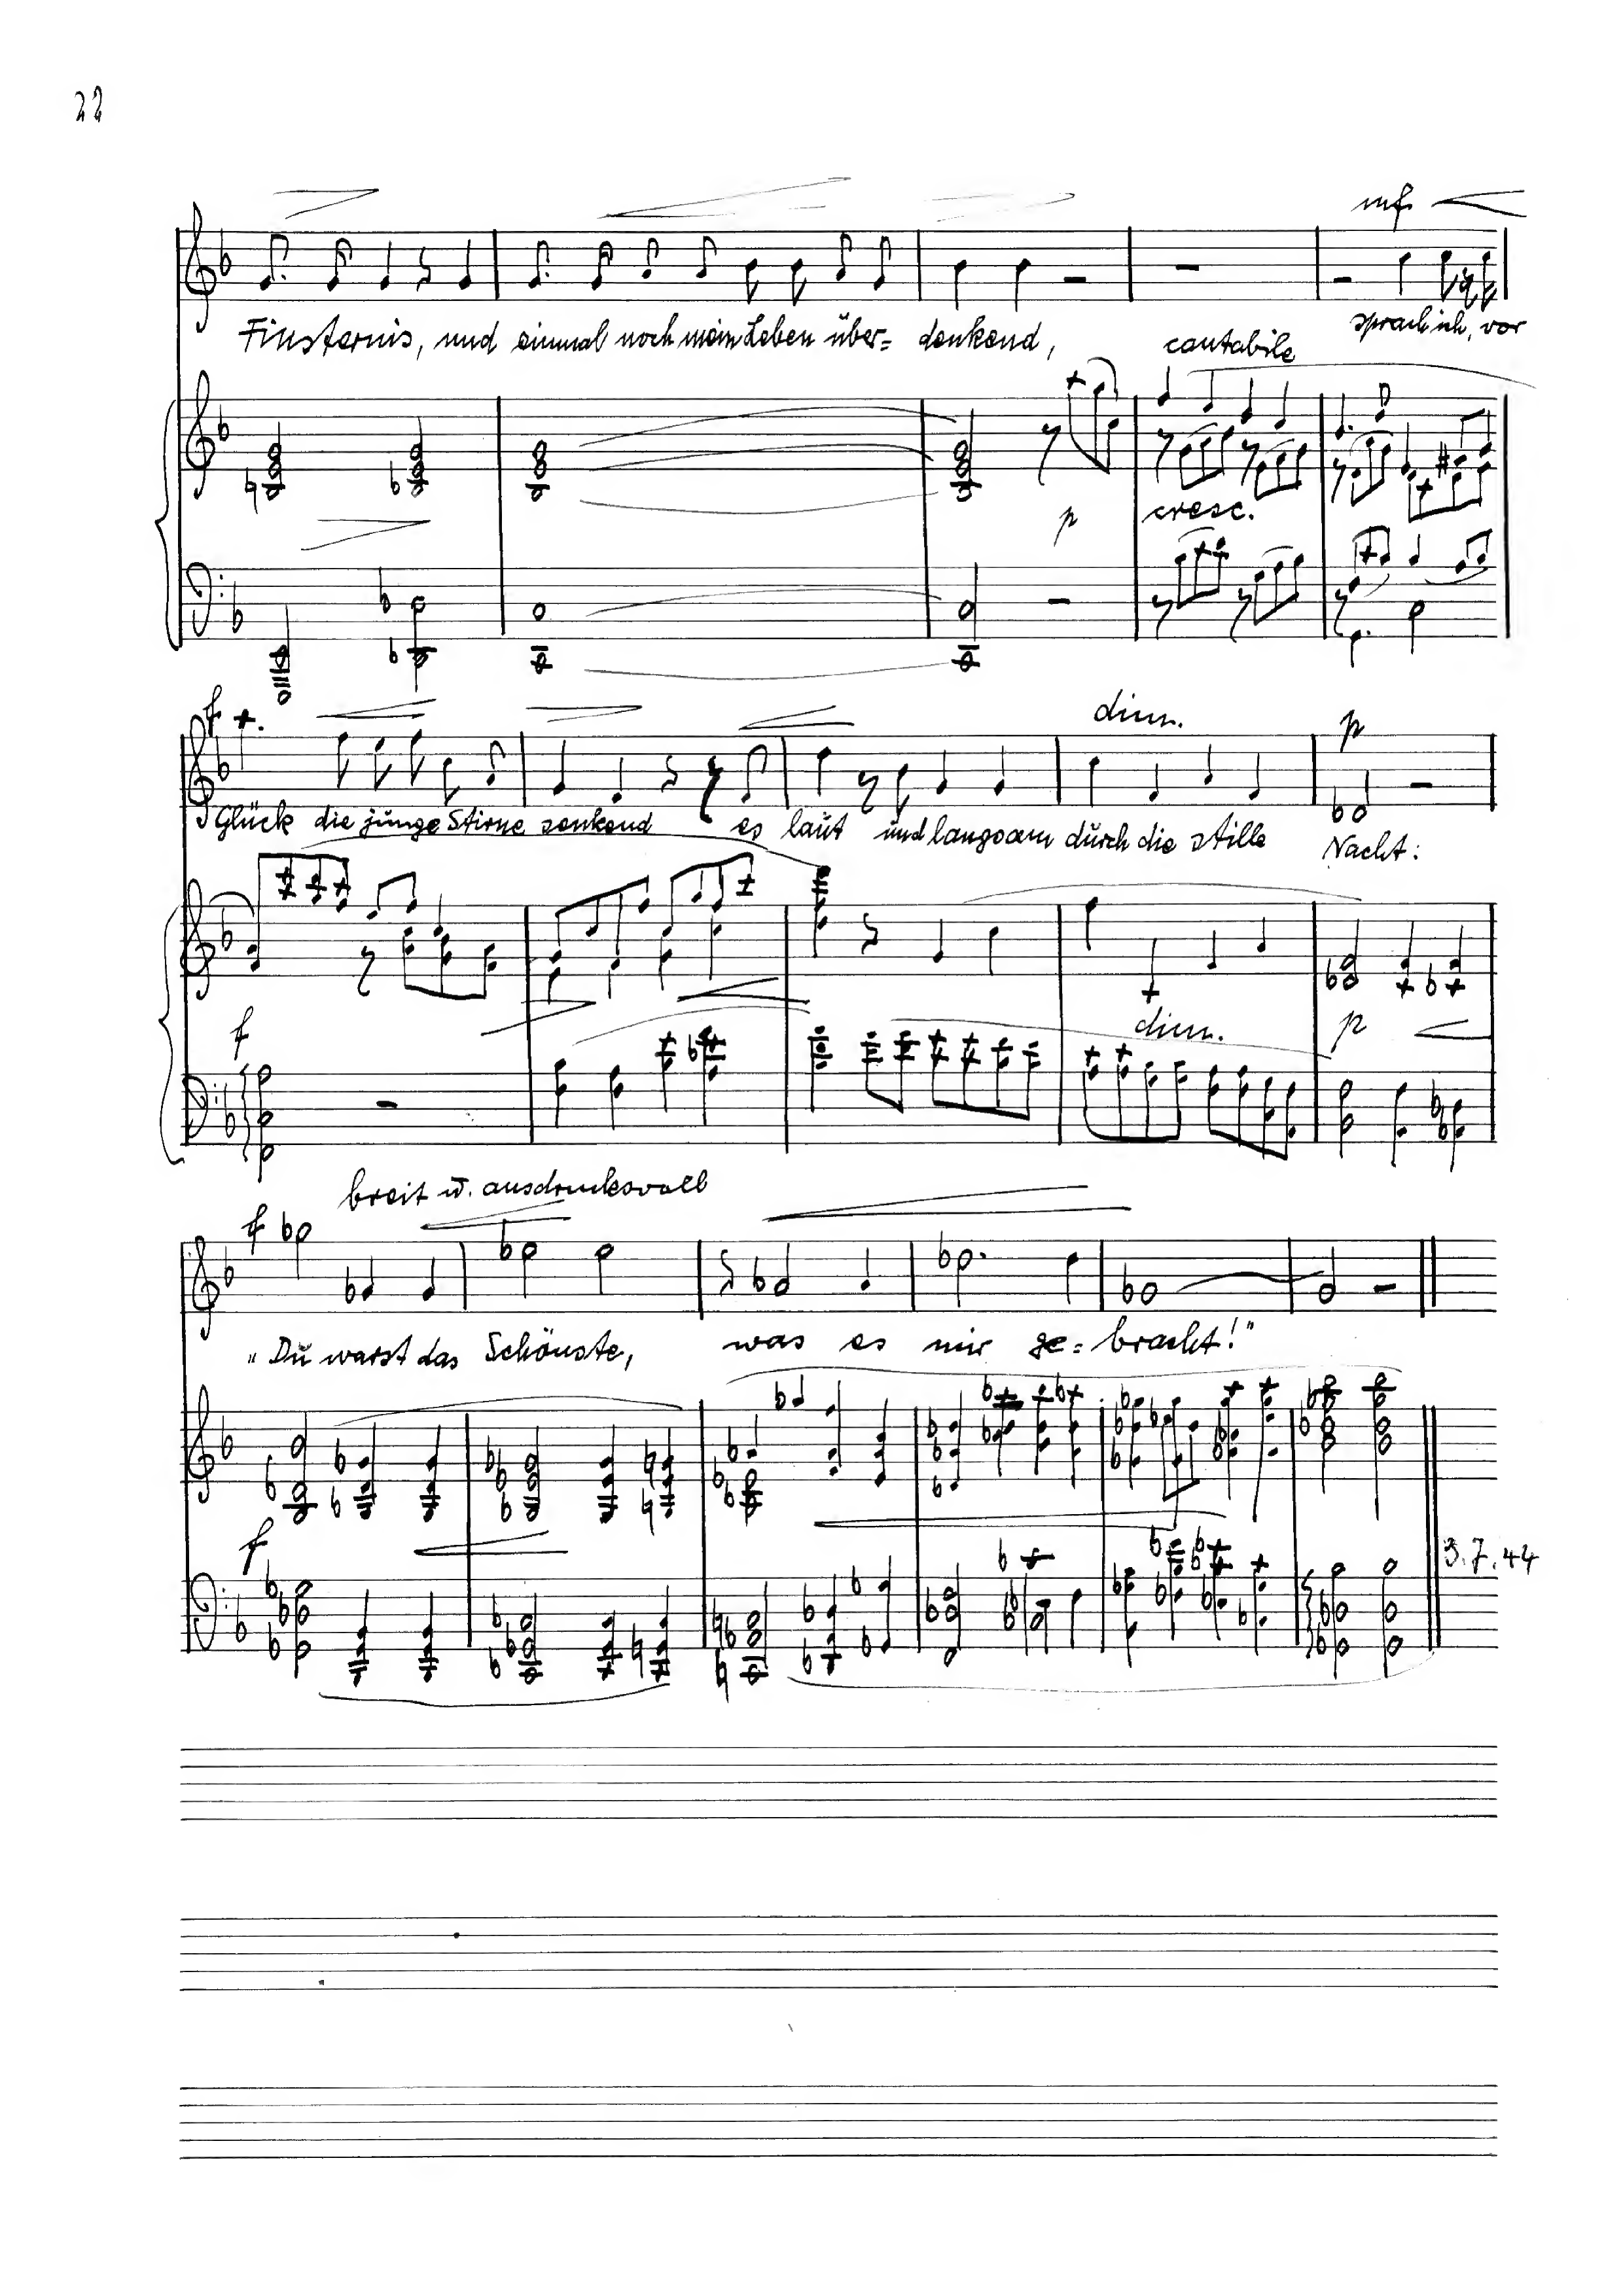 22
mf
Finsternis, und einmal noch mein Leben über= denkend, sprach ich, vor
cantabile
p cresc.
f dim. p
Glück die junge Stirne senkend es laut und langsam durch die stille Nacht:
f dim. p
breit u. ausdrucksvoll
f
"Du warst das Schönste, was es mir ge= bracht!"
f
3.7.44